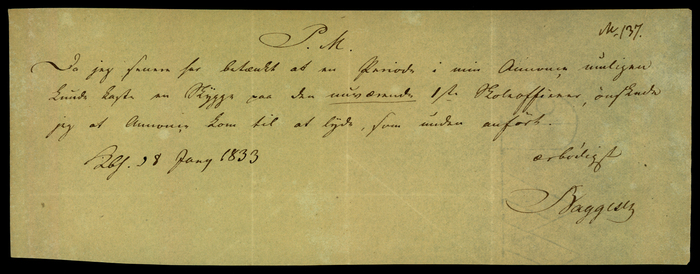 № 137.
P. M.
Da jeg senere har betænkt at en Periode i min Annonce muligen
kunde kaste en Skygge paa den nuværende 1ste Skoleofficeer, önskede
jeg at Annoncen kom til at lyde, som under anfört.
Kbh. 28 Jany 1833
ærbödigst
Baggesen